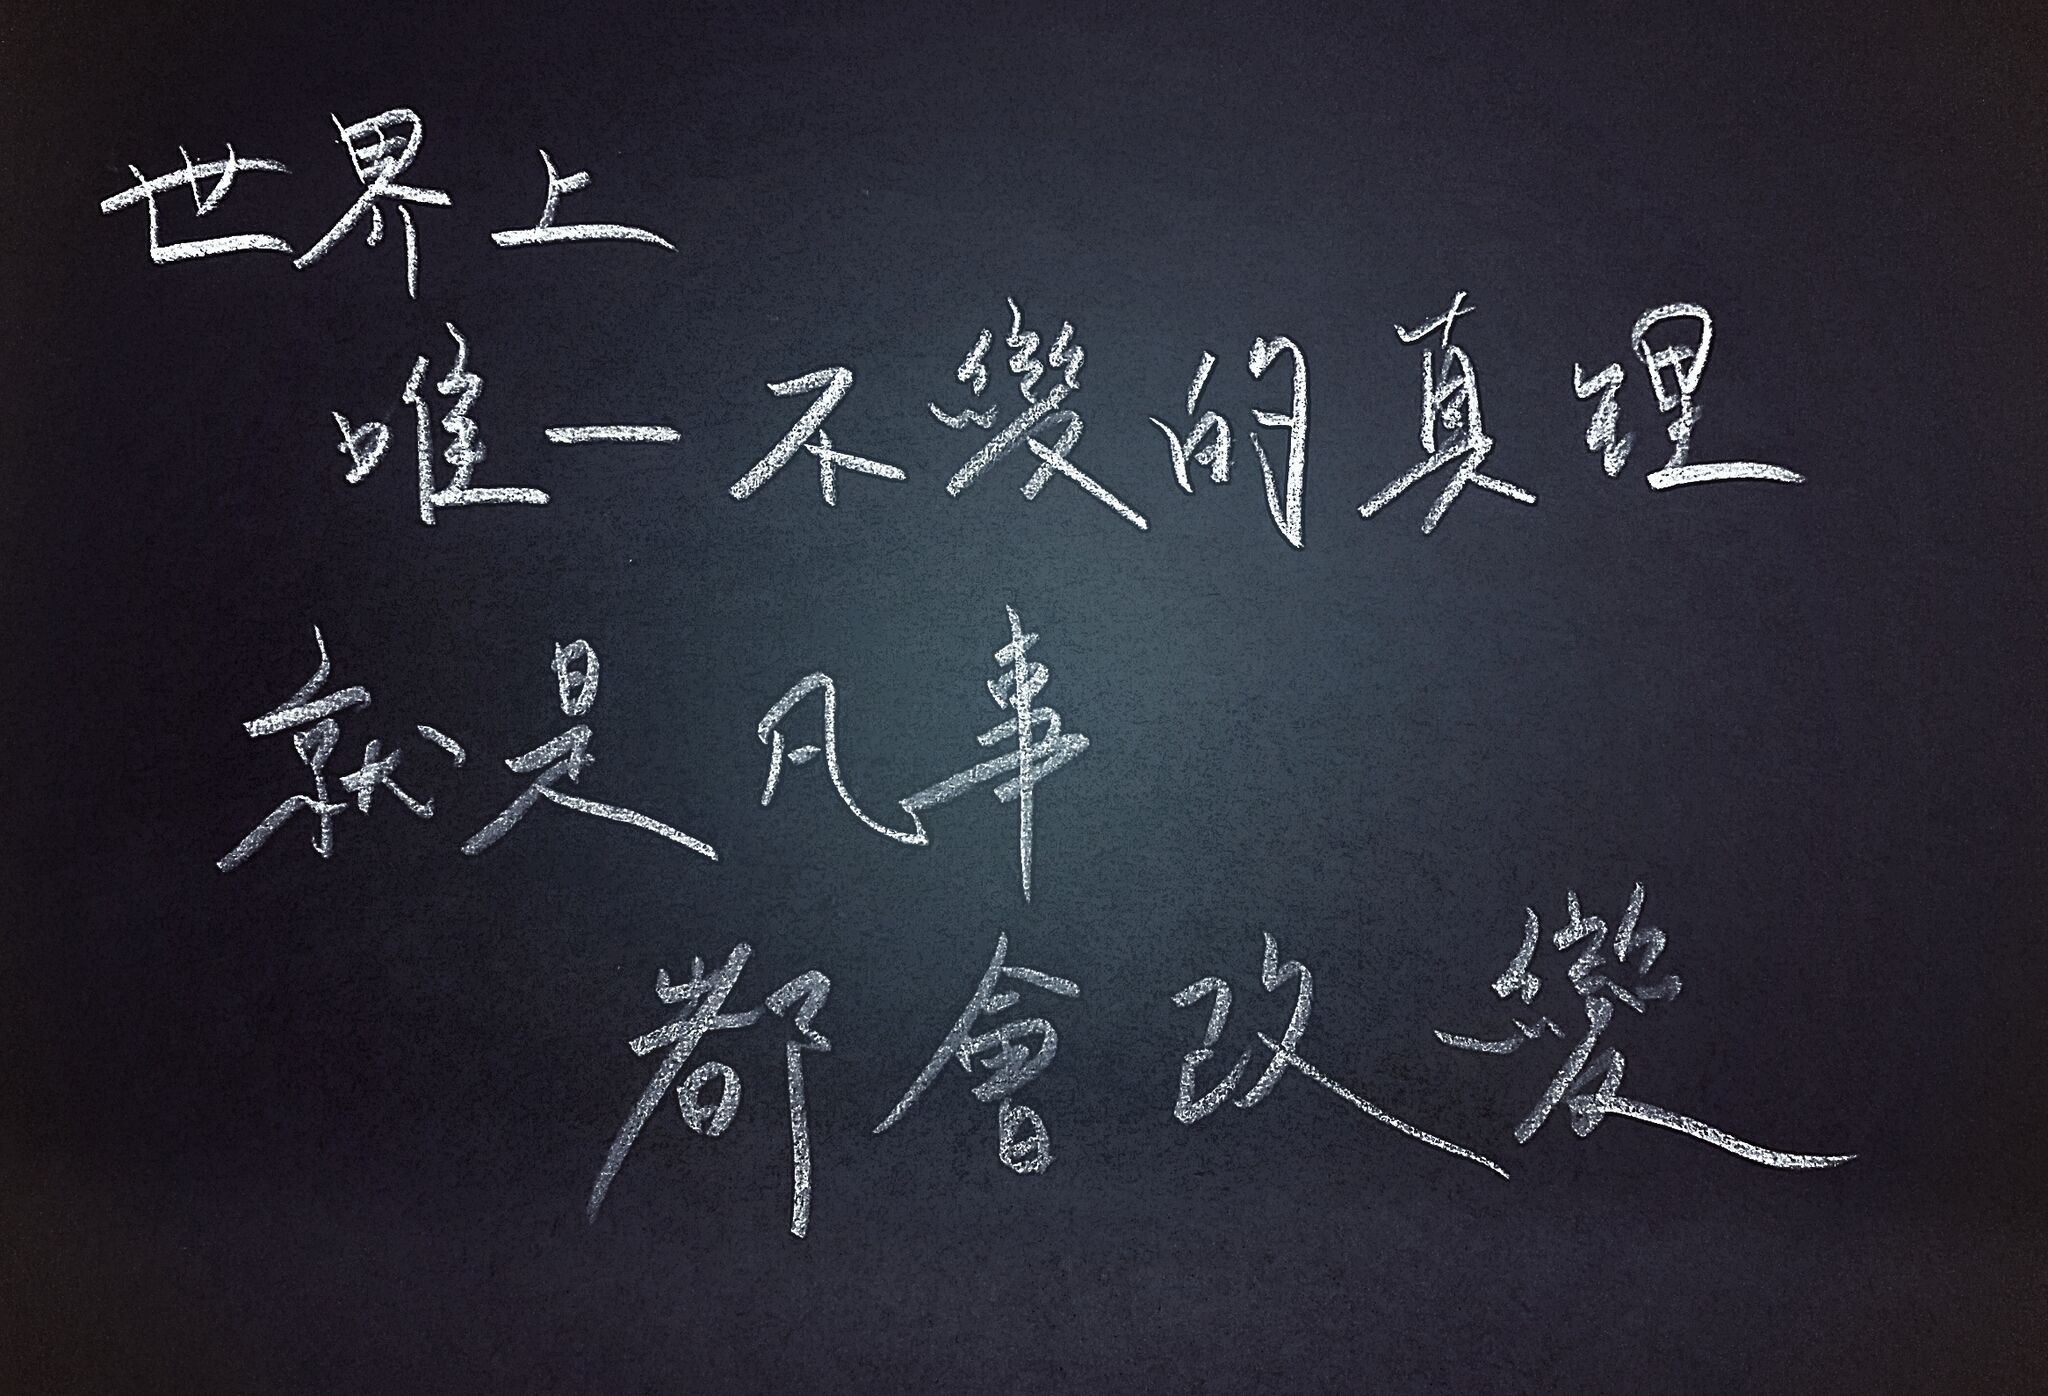 世界上
唯一不變的真理
就是凡事
都會改變